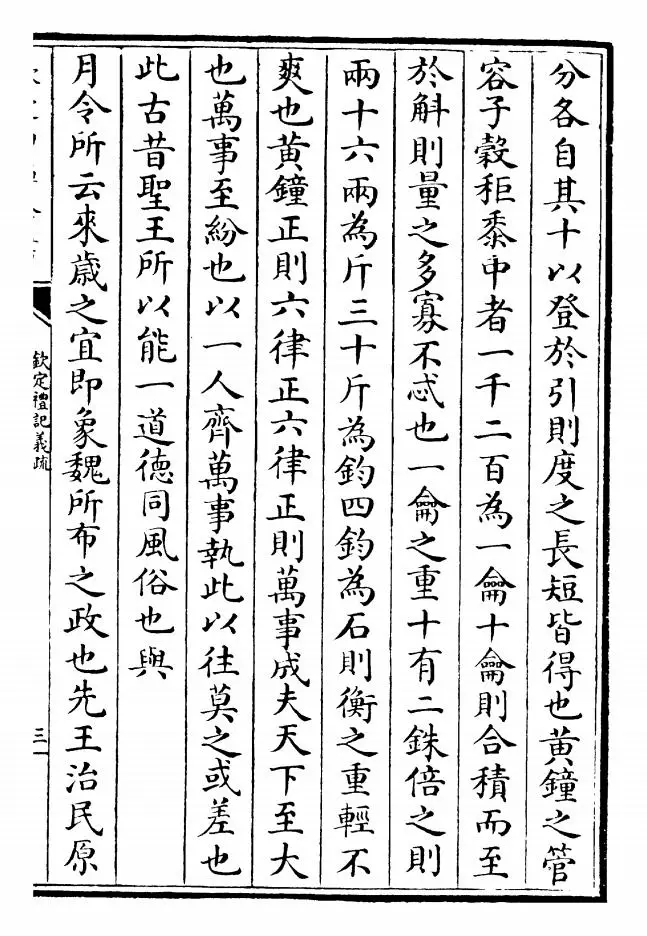 分各自其十以登於引則度之長短皆得也黃鐘之管
容子穀秬黍中者一千二百為一龠十龠則合積而至
於斛則量之多寡不忒也一龠之重十有二銖倍之則
兩十六兩為斤三十斤為鈞四鈞為石則衡之重輕不
爽也黃鐘正則六律正六律正則萬事成夫天下至大
也萬事至紛也以一人齊萬事執此以往莫之或差也
此古昔聖王所以能一道德同風俗也與
月令所云來歲之宜即象魏所布之政也先王治民原
欽定禮記義疏
三